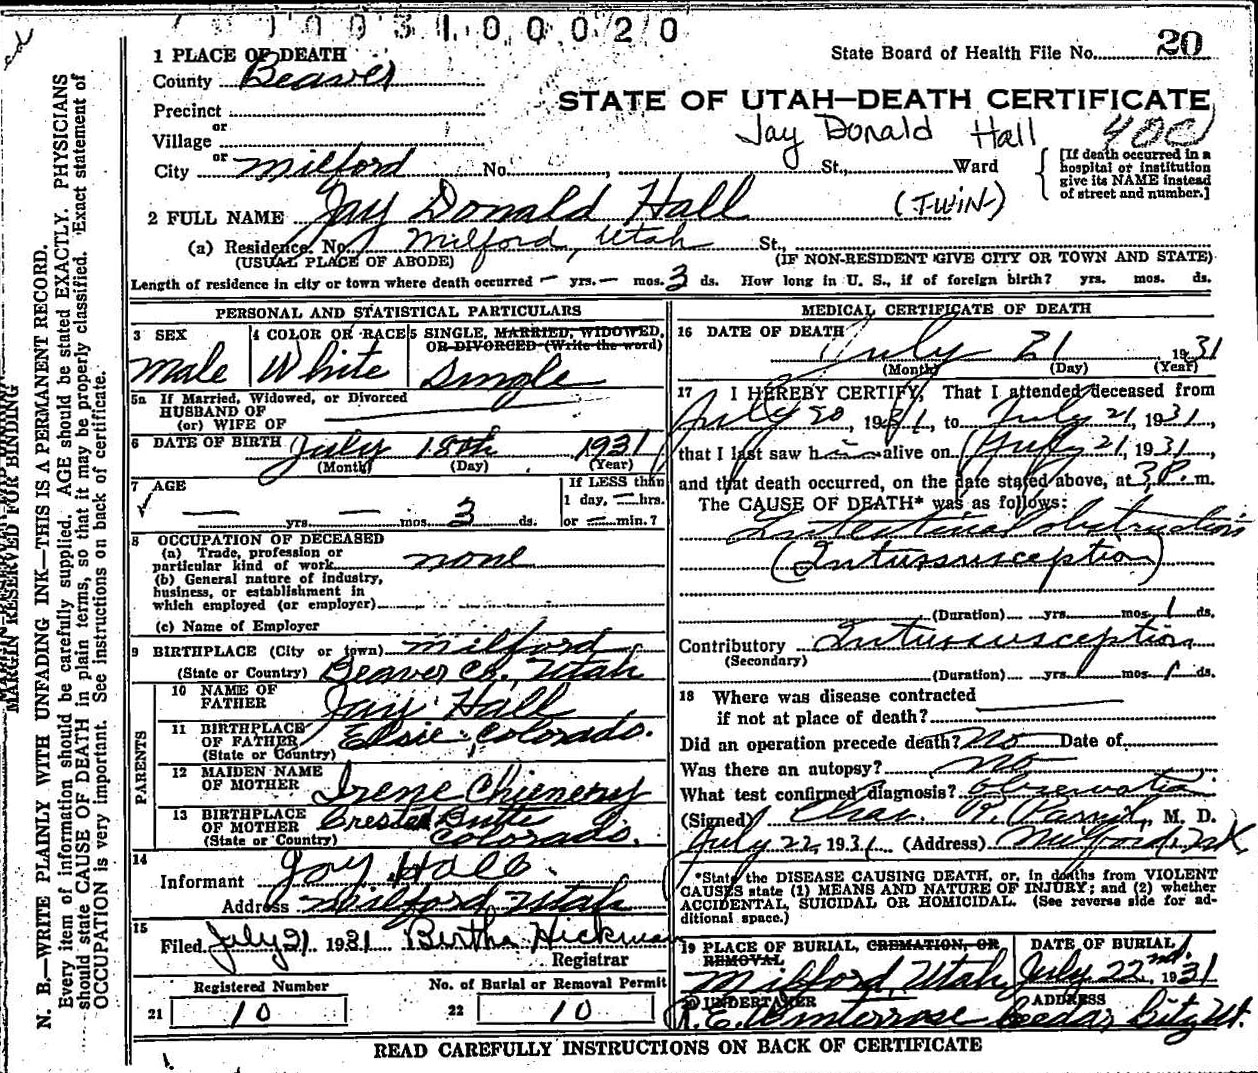 1 0 0 3 1 0 0 0 2 0
State Board of Health File No. 20
1 PLACE OF DEATH
County Beaver
STATE OF UTAH—DEATH CERTIFICATE
Precinct
or
Village
Jay Donald Hall 400
or
City Milford No. , St., Ward
[If death occurred in a hospital or institution give its NAME instead of street and number.]
2 FULL NAME Jay Donald Hall (TWIN)
(a) Residence. No. Milford, Utah St.,
(USUAL PLACE OF ABODE) (IF NON-RESIDENT GIVE CITY OR TOWN AND STATE)
Length of residence in city or town where death occurred — yrs. — mos. 3 ds. How long in U. S., if of foreign birth? yrs. mos. ds.
PERSONAL AND STATISTICAL PARTICULARS
3 SEX
Male
4 COLOR OR RACE
White
5 SINGLE, MARRIED, WIDOWED,
OR DIVORCED (Write the word)
Single
5a If Married, Widowed, or Divorced
HUSBAND OF
(or) WIFE OF
6 DATE OF BIRTH July 18th 1931
(Month) (Day) (Year)
7 AGE
— yrs. — mos. 3 ds.
If LESS than
1 day, — hrs.
or — min.?
8 OCCUPATION OF DECEASED
(a) Trade, profession or
particular kind of work none
(b) General nature of industry,
business, or establishment in
which employed (or employer)
(c) Name of Employer
9 BIRTHPLACE (City or town) Milford
(State or Country) Beaver Co, Utah
PARENTS
10 NAME OF
FATHER Jay Hall
11 BIRTHPLACE
OF FATHER Elsie, Colorado.
(State or Country)
12 MAIDEN NAME
OF MOTHER Irene Chienery
13 BIRTHPLACE
OF MOTHER Crested Butte
(State or Country) Colorado.
14
Informant Jay Hall
Address Milford Utah
15
Filed July 21 1931 Bertha Hickman
Registrar
Registered Number
21 10
No. of Burial or Removal Permit
22 10
MEDICAL CERTIFICATE OF DEATH
16 DATE OF DEATH
July 21, 1931
(Month) (Day) (Year)
17 I HEREBY CERTIFY, That I attended deceased from
July 20, 1931, to July 21, 1931,
that I last saw him alive on July 21, 1931,
and that death occurred, on the date stated above, at 3 P. m.
The CAUSE OF DEATH* was as follows:
Intestinal obstruction
(Intussusception)
(Duration) yrs. mos. 1 ds.
Contributory Intussusception
(Secondary)
(Duration) yrs. mos. 1 ds.
18 Where was disease contracted
if not at place of death?
Did an operation precede death? No Date of
Was there an autopsy? no
What test confirmed diagnosis? Observation
(Signed) Chas. M. D.
July 22, 1931 (Address) Milford, Ut
*State the DISEASE CAUSING DEATH, or, in deaths from VIOLENT
CAUSES state (1) MEANS AND NATURE OF INJURY; and (2) whether
ACCIDENTAL, SUICIDAL OR HOMICIDAL. (See reverse side for ad-
ditional space.)
19 PLACE OF BURIAL, CREMATION, OR
REMOVAL
Milford, Utah
DATE OF BURIAL
July 22nd, 1931
20 UNDERTAKER
R. E. Winterrose
ADDRESS
Cedar City Ut.
READ CAREFULLY INSTRUCTIONS ON BACK OF CERTIFICATE
MARGIN RESERVED FOR BINDING
N. B.—WRITE PLAINLY WITH UNFADING INK—THIS IS A PERMANENT RECORD.
Every item of information should be carefully supplied. AGE should be stated EXACTLY. PHYSICIANS
should state CAUSE OF DEATH in plain terms, so that it may be properly classified. Exact statement of
OCCUPATION is very important. See instructions on back of certificate.